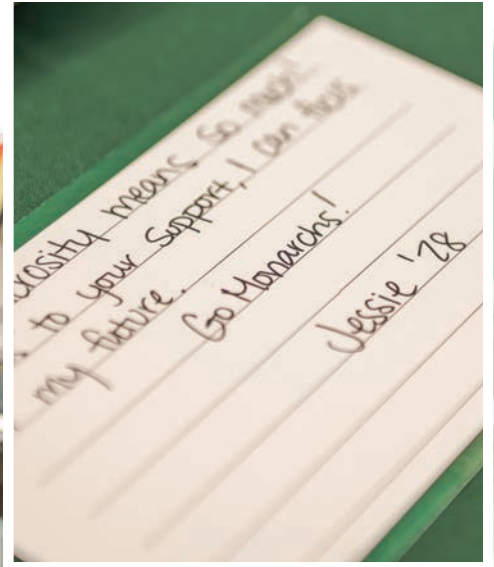 erosity means so much!
to your support, I can focus
my future.
Go Monarchs!
Jessie '28